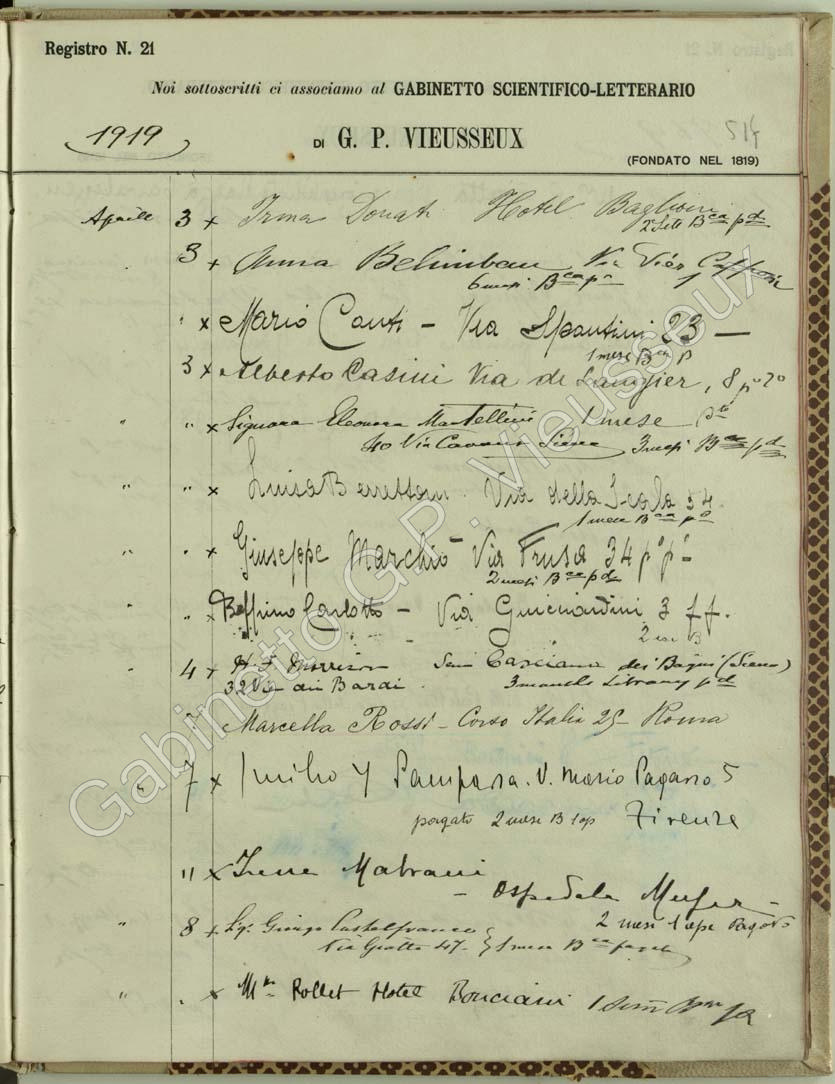 Registro N. 21
Noi sottoscritti ci associamo al GABINETTO SCIENTIFICO-LETTERARIO
1919
DI G. P. VIEUSSEUX
514
(FONDATO NEL 1819)
Aprile 3 x Irma Donati Hotel Baglioni
2 Sett Bca pd
3 x Anna Via Pier Capponi
6 mesi Bca
" x Mario Conti - Via Spontini 23 —
1 mese Bca
3 x Alberto Casini Via de Laugier, 8 po 2o
" " x Signora Eleonora Martellini 1 mese
40 Via Cavour Siena 3 mesi Bca pd
" " x Luisa Via della Scala 34
1 mese Bca pd
" " x Giuseppe Marchiò Via Frusa 34 po po
2 mesi Bca pd
" x Carlotta - Via Guicciardini 3
2 B
" 4 x H. F. Morrison San Casciano dei Bagni (Siena)
32 Via dei Bardi. 3 months Library pd
Marcella Rossi - Corso Italia 25 - Roma
" 7 x V. Mario Pagano 5
pagato 2 mese B 1 op Firenze
11 x Irene
- Ospedale Meyer -
2 mesi 1 ope Pagato
" 8 x Sig. Giorgio Castelfranco
Via Giotto 47 - 1 mese Bca
" " x Rollet Hotel Bonciani 1
Gabinetto G.P. Vieusseux